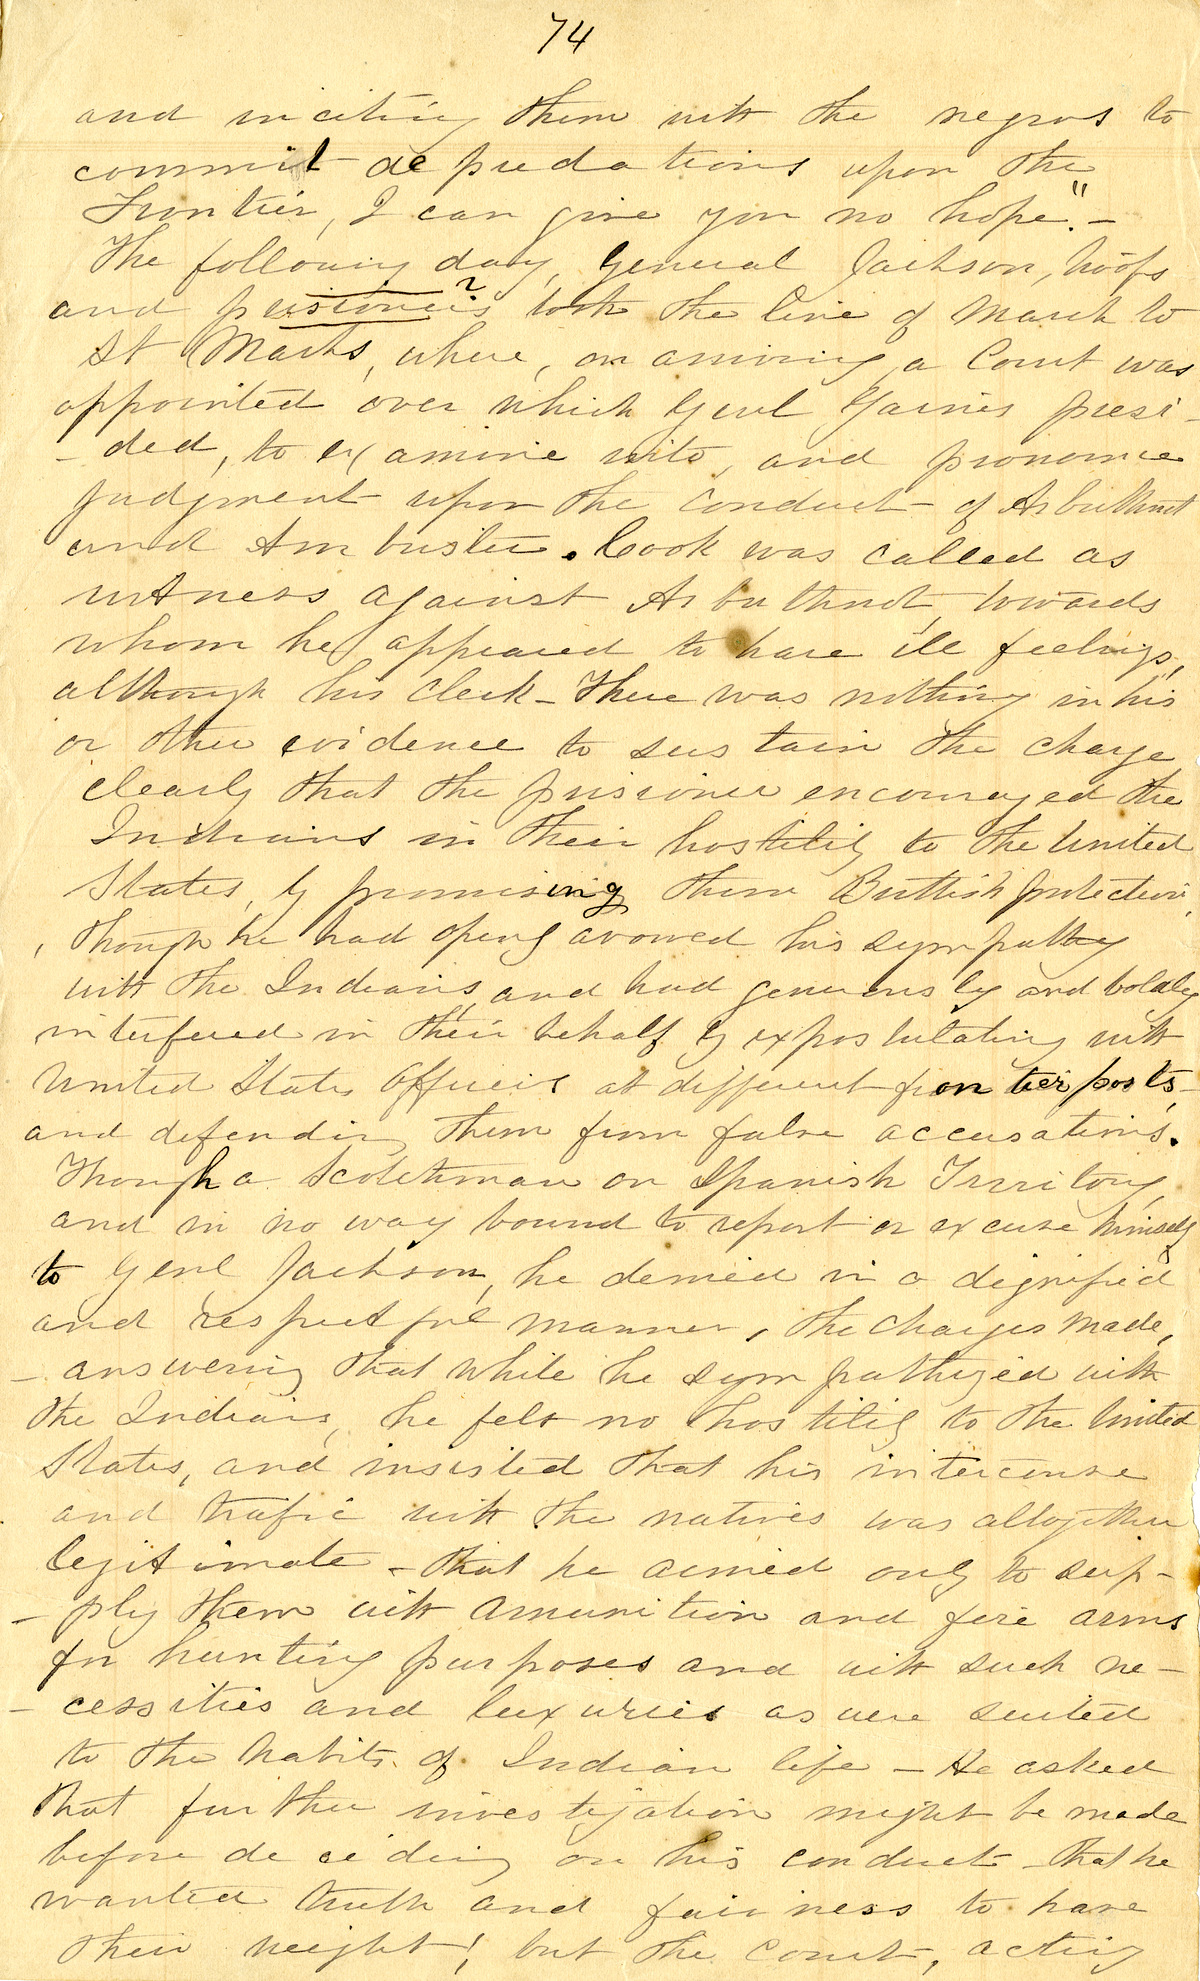 74
and inciting them with the negros to
commit depredations upon the
Frontier, I can give you no hope." -
The following day, General Jackson, troops
and prisioners took the line of March to
St Marks, where, on arriving, a Court was
appointed over which Genl Gaines presi-
-ded, to examine into, and pronounce
judgment upon the conduct of Arbuthnot
and Ambuster. Cook was called as
witness against Arbuthnot, towards
whom he appeared to have ill feelings,
although his Clerk - There was nothing in his
or other evidence to sustain the charge
clearly that the prisioner encouraged the
Indians in their hostility to the United
States, by promising them Brittish protection,
, though he had openly avowed his sympathy
with the Indians, and had generously and boldly
interfered in their behalf by expostulating with
United States Officers at different frontier posts,
and defending them from false accusations.
Though a Scotchman on Spanish Territory,
and in no way bound to report or excuse himself
to Genl Jackson, he denied in a dignified
and respectful manner, the charges made,
- answering that while he sympathized with
the Indians, he felt no hostility to the United
States, and insisted that his intercourse
and trafic with the natives was altogether
legitimate - that he aimed only to sup-
-ply them with amunition and fire arms
for hunting purposes and with such ne-
-cessities and luxuries as were suited
to the habits of Indian life - He asked
that further investigation might be made
before deciding on his conduct - that he
wanted truth and fairness to have
their weight!, but the Court, acting